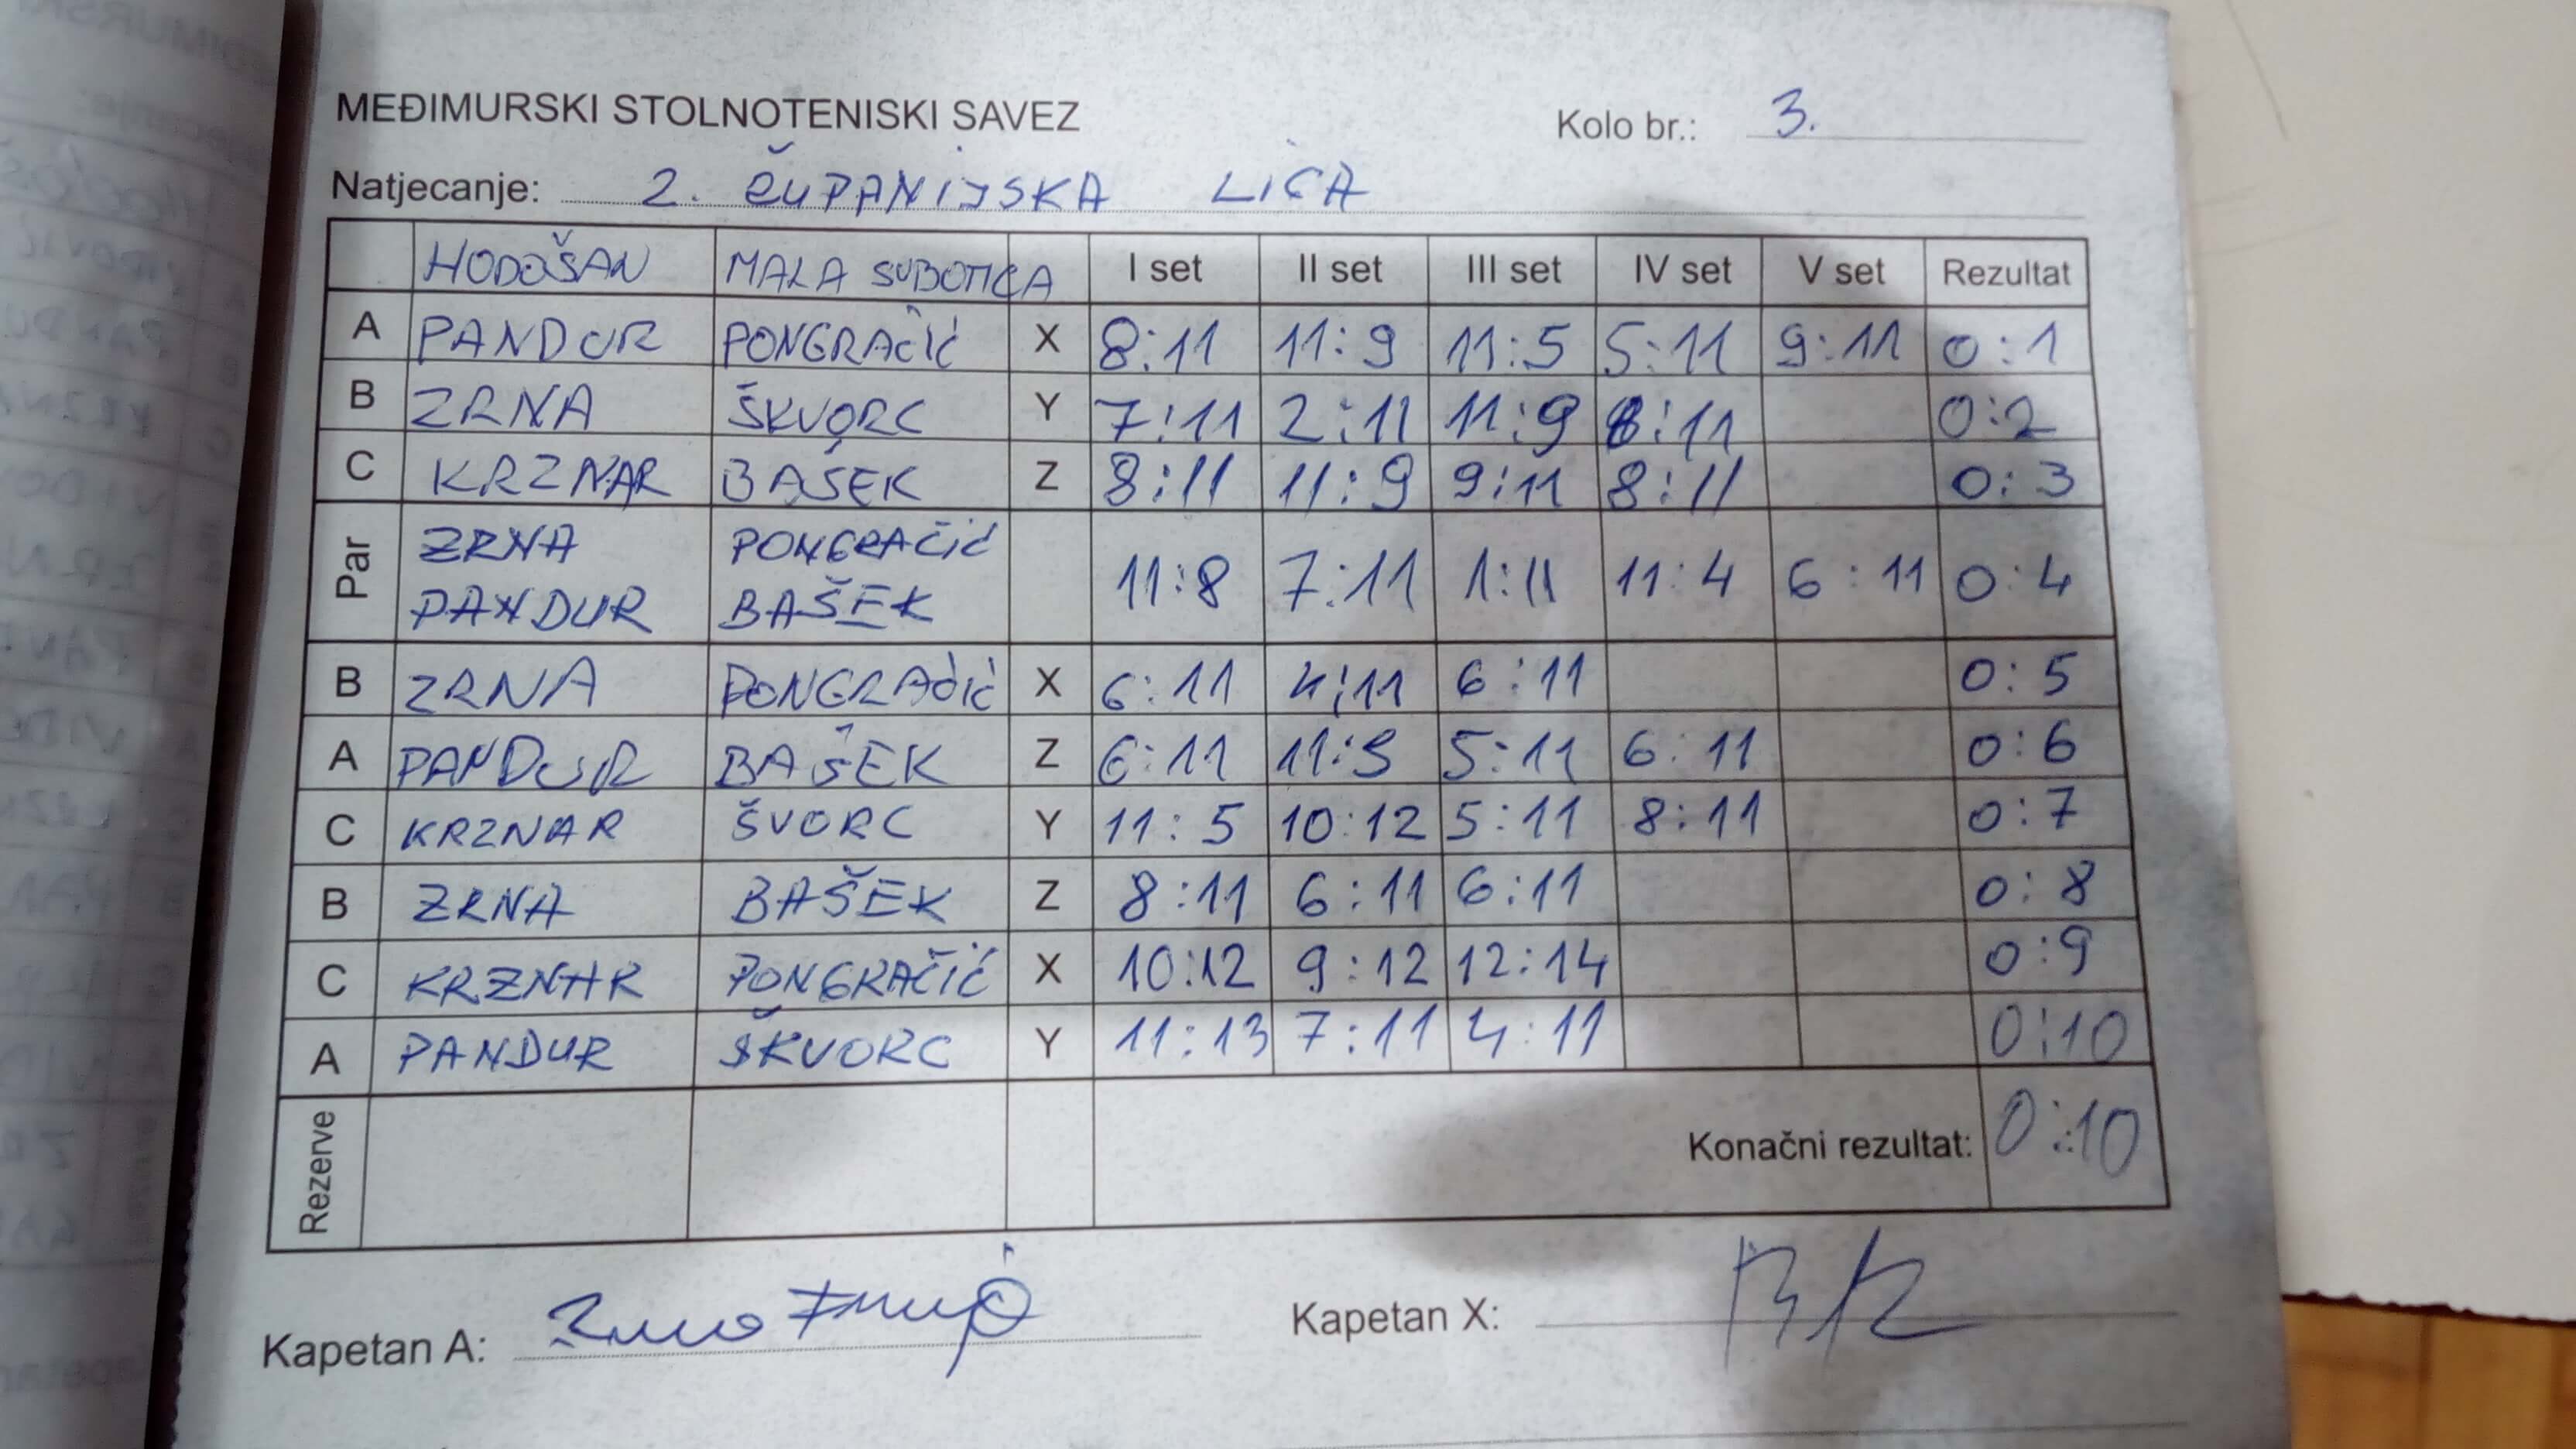 MEĐIMURSKI STOLNOTENISKI SAVEZ Kolo br.: 3.
Natjecanje: 2. ŽUPANIJSKA LIGA
HODOŠAN MALA SUBOTICA I set II set III set IV set V set Rezultat
A PANDUR PONGRAČIĆ X 8:11 11:9 11:5 5:11 9:11 0:1
B ZRNA ŠKVORC Y 7:11 2:11 11:9 8:11 0:2
C KRZNAR BAŠEK Z 8:11 11:9 9:11 8:11 0:3
Par ZRNA PONGRAČIĆ 11:8 7:11 1:11 11:4 6:11 0:4
PANDUR BAŠEK
B ZRNA PONGRAČIĆ X 6:11 4:11 6:11 0:5
A PANDUR BAŠEK Z 6:11 5:11 6:11 0:6
C KRZNAR ŠVORC Y 11:5 10:12 5:11 8:11 0:7
B ZRNA BAŠEK Z 8:11 6:11 6:11 0:8
C KRZNAR PONGRAČIĆ X 10:12 9:12 12:14 0:9
A PANDUR ŠKVORC Y 11:13 7:11 4:11 0:10
Rezerve Konačni rezultat: 0:10
Kapetan A: Kapetan X: